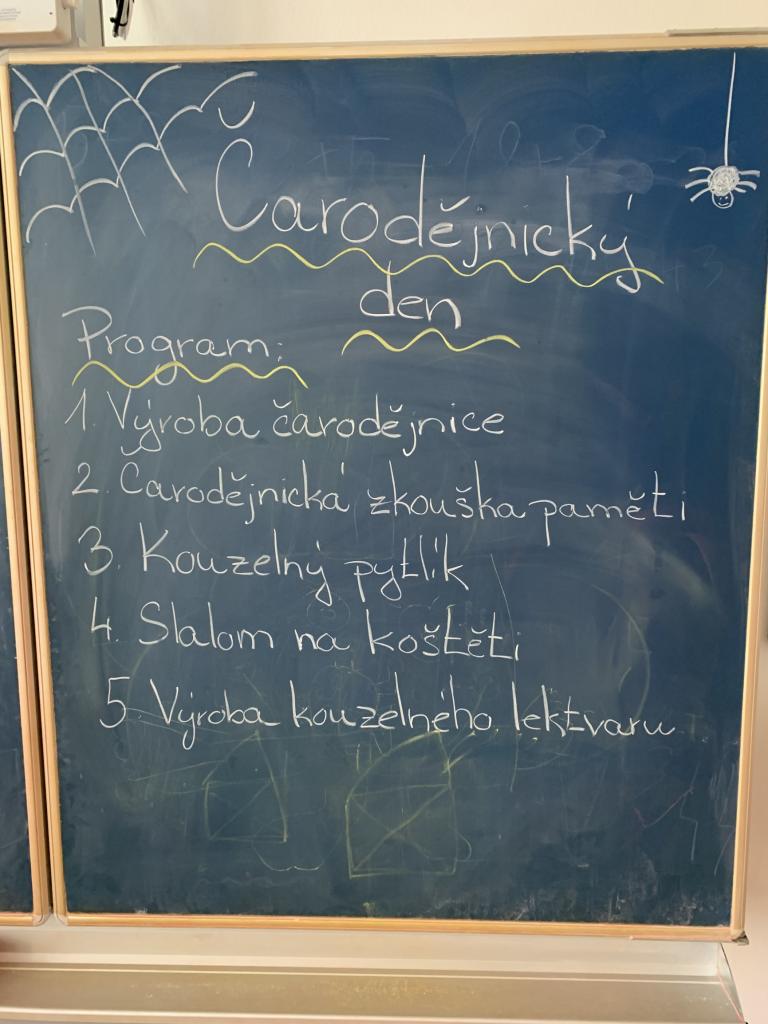 Čarodějnický
den
Program:
1. Výroba čarodějnice
2. Čarodějnická zkouška paměti
3. Kouzelný pytlík
4. Slalom na koštěti
5. Výroba kouzelného lektvaru